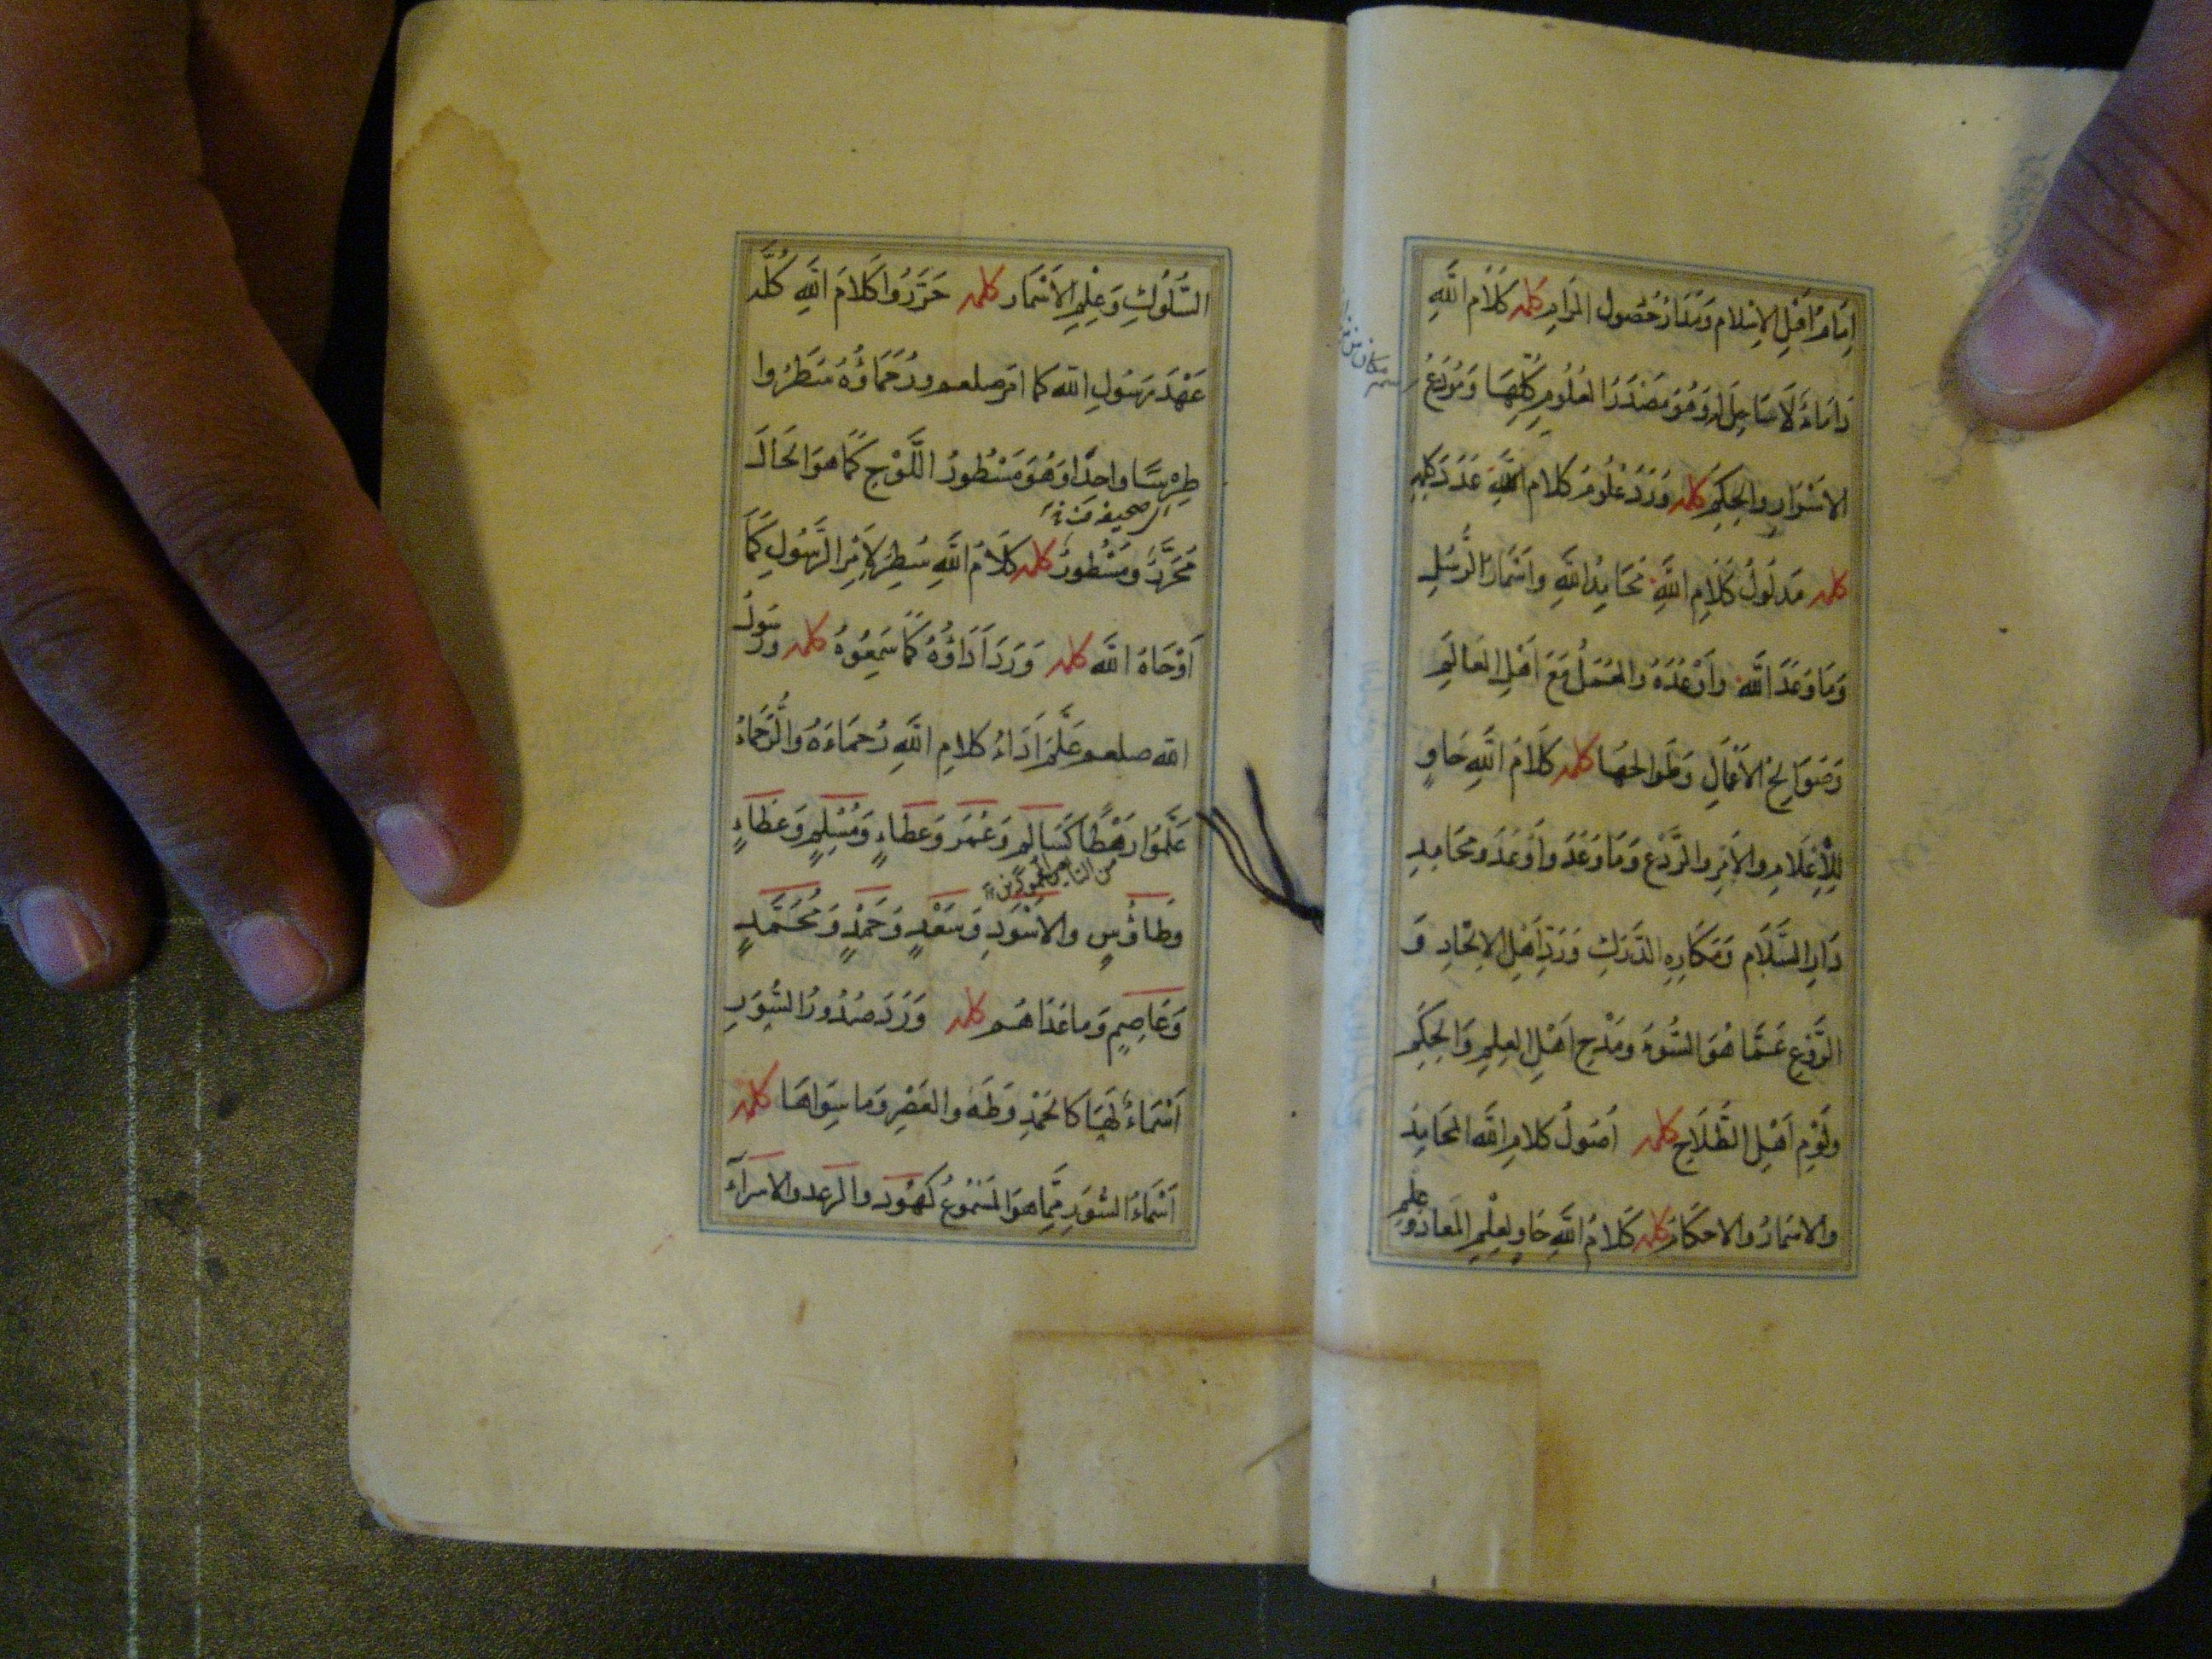 اِمَامُ اَهْلِ الاِسْلَامِ وَمَدَارُ حُصُولِ المَرَامِ كلمه كَلَامُ اللّٰهِ
دَامَاءُ لَا سَاحِلَ لَهُ وَهُوَ مَصْدَرُ العُلُومِ كُلِّهَا وَمُودَعُ
الاَسْرَارِ والحِكَمِ كلمه وَرَدَ عُلُومُ كَلَامِ اللّٰهِ عَدَدَ كَلِمِهِ
كلمه مَدْلُولُ كَلَامِ اللّٰهِ مَحَامِدُ اللّٰهِ وَاَسْمَارُ الرُّسُلِ
وَمَا وَعَدَ اللّٰهُ وَاَوْعَدَهُ والعَمَلُ مَعَ اَهْلِ العَالَمِ
وَصَوَالِحُ الاَعْمَالِ وَطَوَالِحُهَا كلمه كَلَامُ اللّٰهِ حَاوٍ
لِلْاِعْلَامِ والاَمْرِ والرَّدْعِ وَمَا وَعَدَ وَاَوْعَدَ وَمَحَامِدِ
دَارِ السَّلَامِ وَمَكَارِهِ الدَّرَكِ وَرَدِّ اَهْلِ الاِلْحَادِ وَ
الرَّدْعِ عَمَّا هُوَ السُّوءُ وَمَدْحِ اَهْلِ العِلْمِ وَالحِكَمِ
ولَوْمِ اَهْلِ الطَّلَاحِ كلمه اُصُولُ كَلَامِ اللّٰهِ المَحَامِدُ
والاَسْمَارُ والاَحْكَامُ كلمه كَلَامُ اللّٰهِ حَاوٍ لِعِلْمِ المَعَادِ وَعِلْمِ
السُّلُوكِ وَعِلْمِ الاَسْمَارِ كلمه حَرَّرُوا كَلَامَ اللّٰهِ كُلَّهُ
عَهْدَ رَسُولِ اللّٰهِ كَمَا امَرَ صلعم ورُحَمَاؤُهُ سَطَرُوا
طِرْسًا واحِدًا وَهُوَ مَسْطُورُ اللَّوْحِ كَمَا هوَ الحَالَ
مُحَرَّرٌ وَمَسْطُورٌ كلمه كَلَامُ اللّٰهِ سُطِرَ لِاَمْرِ الرَّسُولِ كَمَا
اَوْحَاهُ اللّٰه كلمه وَرَدَ اَدَاؤُهُ كَمَا سَمِعُوهُ كلمه وَرَسُولُ
اللّٰه صلعم عَلَّمَ اَدَاءَ كَلَامِ اللّٰهِ رُحَمَاءَهُ والرُّحَمَاءُ
عَلَّمُوا رَهْطًا كَسَالِمٍ وَعُمَرَ وَعَطَاءٍ وَمُسْلِمٍ وَعَطَاءٍ
وَطَاوُسٍ والاَسْوَدِ وَسَعْدٍ وَحَمْدٍ وَمُحَمَّدٍ
وَعَاصِمٍ وَمَا عَدَاهُم كلمه وَرَدَ صُدُورُ السُّوَرِ
اَسْمَاءٌ لَهَا كَالحَمْدِ وَطٰهٰ والعَصْرِ وَمَا سِوَاهَا كلمه
اَسْمَاءُ السُّوَرِ مِمَّا هوَ المَسْمُوعُ كَهُودٍ والرعد والاسراء